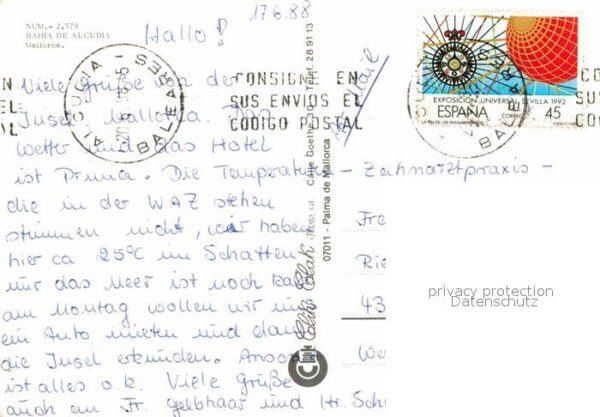 NUM.- 2.578
BAHIA DE ALCUDIA
Mallorca.
17.6.88
Hallo!
Viele Grüße von der
Insel Mallorca. Das
Wetter und das Hotel
ist Prima. Die Temperatur
die in der WAZ stehen
stimmen nicht, wir haben
hier ca 25°C im Schatten
nur das Meer ist noch kalt
am Montag wollen wir uns
ein Auto mieten und dann
die Insel erkunden. Ansonst
ist alles o.k. Viele Grüße
auch an Fr. Gelbhaar und Hr. Sch
ALCUDIA
BALEARES
CONSIGNE EN
SUS ENVIOS EL
CODIGO POSTAL
Calle Goethe Telef. 28 91 13
07011 - Palma de Mallorca
EXPOSICION UNIVERSAL SEVILLA 1992
ESPAÑA
CORREOS
45
BALEARES
CO
SUS
CO
- Zahnarztpraxis -
Fr
Rie
43
We
privacy protection
Datenschutz